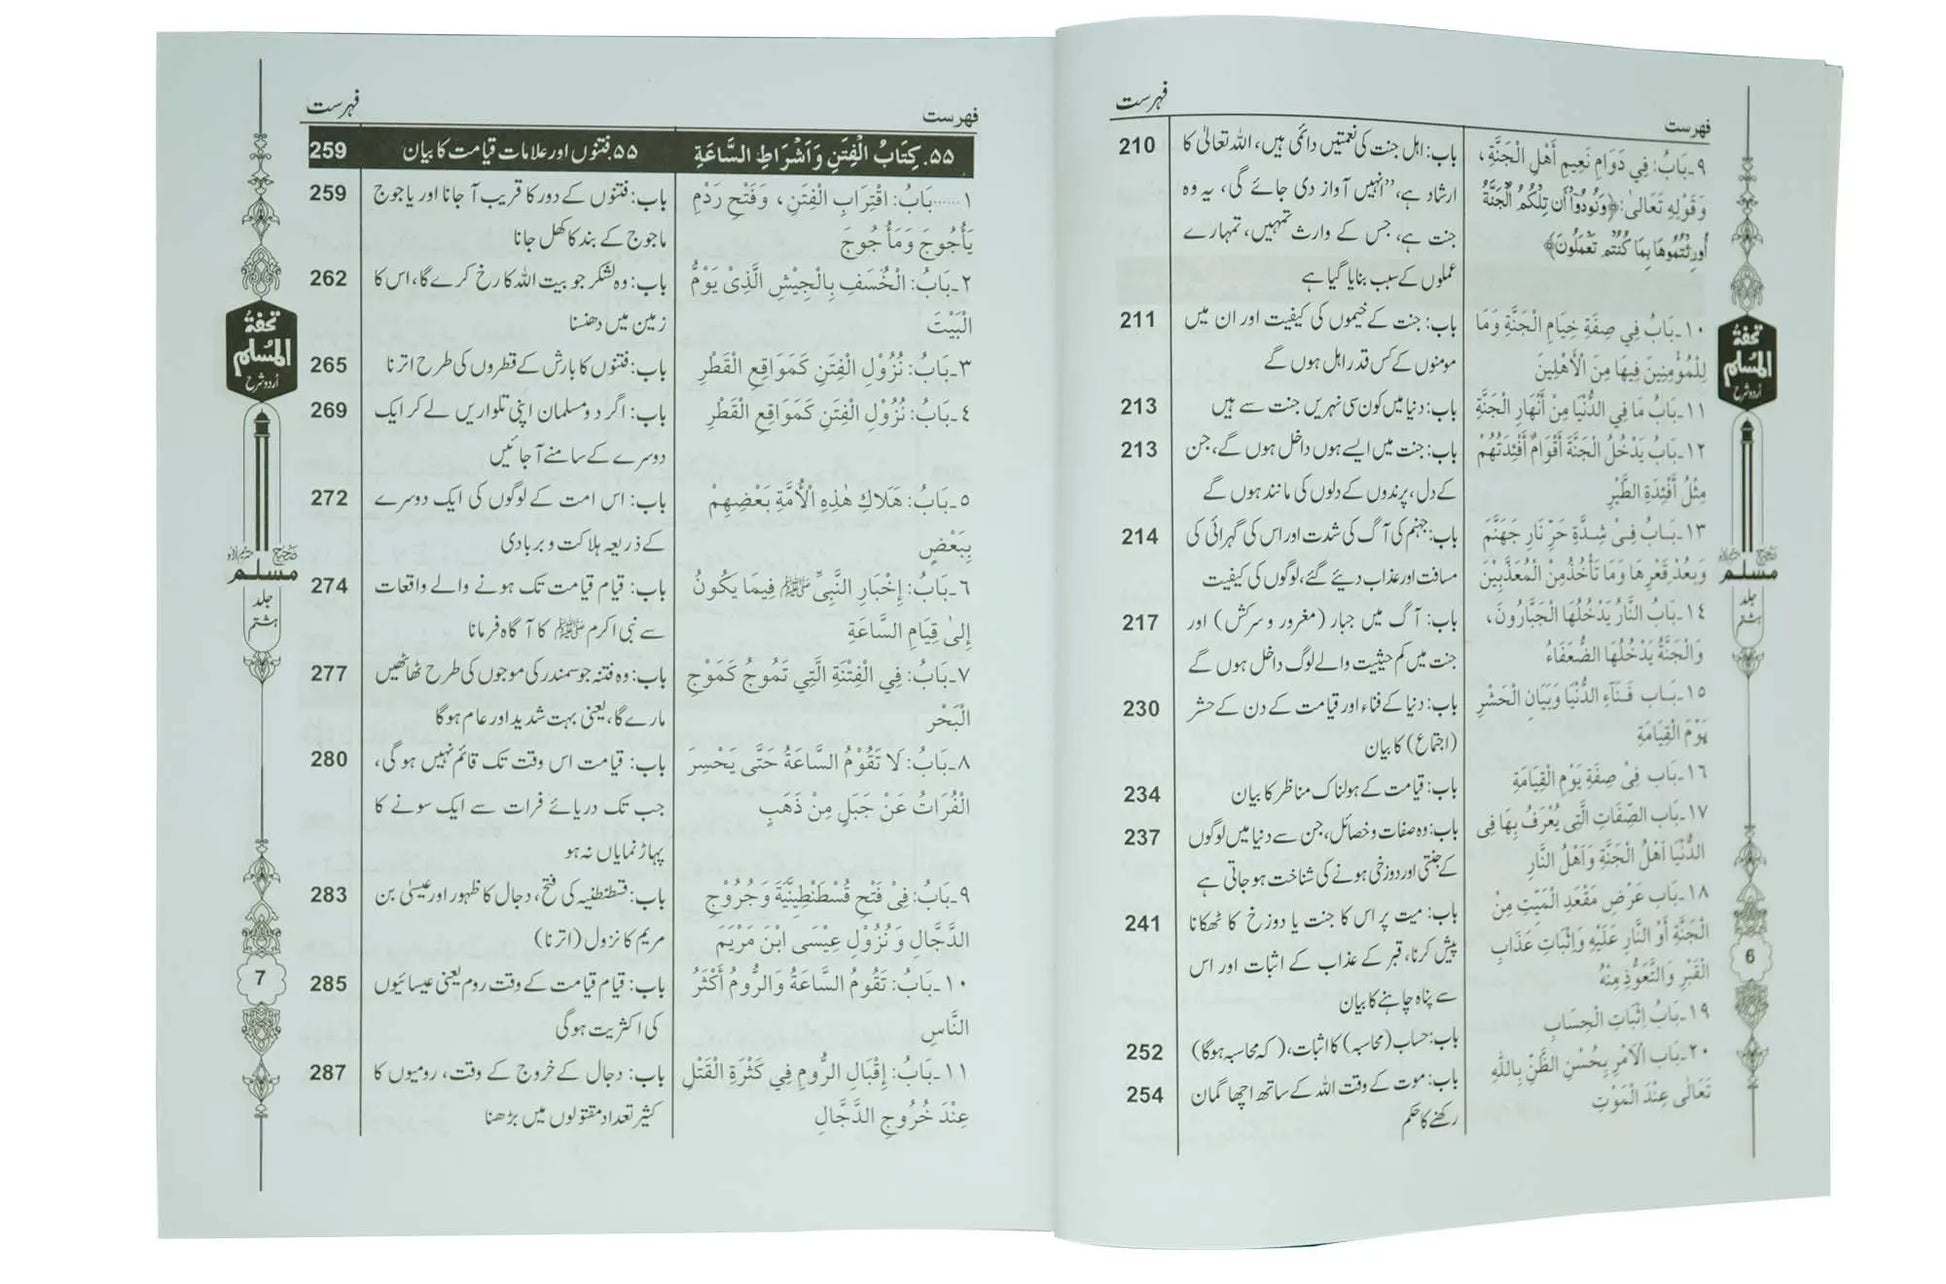 فہرست
فہرست
٩۔بَابُ: فِي دَوَامِ نَعِيمِ أَهْلِ الْجَنَّةِ،
وَقَوْلِهِ تَعَالىٰ:﴿وَنُودُوٓا أَن تِلْكُمُ الْجَنَّةُ
أُورِثْتُمُوهَا بِمَا كُنْتُمْ تَعْمَلُونَ﴾
باب: اہل جنت کی نعمتیں دائمی ہیں، اللہ تعالیٰ کا
ارشاد ہے،’’انہیں آواز دی جائے گی، یہ وہ
جنت ہے، جس کے وارث تمہیں، تمہارے
عملوں کے سبب بنایا گیا ہے
210
١٠۔بَابُ فِي صِفَةِ خِيَامِ الْجَنَّةِ وَمَا
لِلْمُؤْمِنِينَ فِيهَا مِنَ الْأَهْلِينَ
باب: جنت کے خیموں کی کیفیت اور ان میں
مومنوں کے کس قدر اہل ہوں گے
211
١١۔بَابُ مَا فِي الدُّنْيَا مِنْ أَنْهَارِ الْجَنَّةِ
باب: دنیا میں کون سی نہریں جنت سے ہیں
213
١٢۔بَابُ يَدْخُلُ الْجَنَّةَ أَقْوَامٌ أَفْئِدَتُهُمْ
مِثْلُ أَفْئِدَةِ الطَّيْرِ
باب: جنت میں ایسے ہوں داخل ہوں گے، جن
کے دل، پرندوں کے دلوں کی مانند ہوں گے
213
١٣۔بَابُ فِىْ شِدَّةِ حَرِّ نَارِ جَهَنَّمَ
وَبُعْدِ قَعْرِهَا وَمَا تَأْخُذُمِنْ الْمُعَذَّبِيْنَ
باب: جہنم کی آگ کی شدت اور اس کی گہرائی کی
مسافت اور عذاب دیئے گئے، لوگوں کی کیفیت
214
١٤۔بَابُ النَّارُ يَدْخُلُهَا الْجَبَّارُونَ،
وَالْجَنَّةُ يَدْخُلُهَا الضُّعَفَاءُ
باب: آگ میں جبار (مغرور و سرکش) اور
جنت میں کم حیثیت والے لوگ داخل ہوں گے
217
١٥۔بَاب فَنَآءِ الدُّنْيَا وَبَيَانِ الْحَشْرِ
يَوْمَ الْقِيَامَةِ
باب: دنیا کے فناء اور قیامت کے دن کے حشر
(اجتماع) کا بیان
230
١٦۔بَاب فِىْ صِفَةِ يَوْمِ الْقِيَامَةِ
باب: قیامت کے ہولناک مناظر کا بیان
234
١٧۔بَاب الصِّفَاتِ الَّتِى يُعْرَفُ بِهَا فِى
الدُّنْيَا اَهْلُ الْجَنَّةِ وَاَهْلُ النَّارِ
باب: وہ صفات و خصائل، جن سے دنیا میں لوگوں
کے جنتی اور دوزخی ہونے کی شناخت ہو جاتی ہے
237
١٨۔بَاب عَرْضِ مَقْعَدِ الْمَيِّتِ مِنْ
الْجَنَّةِ أَوْ النَّارِ عَلَيْهِ وَاِثْبَاتِ عَذَابِ
الْقَبْرِ وَالتَّعَوُّذِ مِنْهُ
باب: میت پر اس کا جنت یا دوزخ کا ٹھکانا
پیش کرنا، قبر کے عذاب کے اثبات اور اس
سے پناہ چاہنے کا بیان
241
١٩۔بَابُ اِثْبَاتِ الْحِسَابِ
باب: حساب (محاسبہ) کا اثبات، (کہ محاسبہ ہوگا)
252
٢٠۔بَاب الْاَمْرِ بِحُسْنِ الظَّنِّ بِاللّٰهِ
تَعَالٰى عِنْدَ الْمَوْتِ
باب: موت کے وقت اللہ کے ساتھ اچھا گمان
رکھنے کا حکم
254
تحفۃ
المُسلم
اُردو شرح
صحیح
مسلم
جلد
ہشتم
6
فہرست
فہرست
٥٥. كِتَابُ الْفِتَنِ وَاَشْرَاطِ السَّاعَةِ
۵۵. فتنوں اور علامات قیامت کا بیان
259
١......بَابُ: اقْتِرَابِ الْفِتَنِ، وَفَتْحِ رَدْمِ
يَأْجُوجَ وَمَأْجُوجَ
باب: فتنوں کے دور کا قریب آ جانا اور یاجوج
ماجوج کے بند کا کھل جانا
259
٢۔بَابُ: الْخُسَفِ بِالْجِيْشِ الَّذِىْ يَؤُمُّ
الْبَيْتَ
باب: وہ لشکر جو بیت اللہ کا رخ کرے گا، اس کا
زمین میں دھنسنا
262
٣۔بَابُ: نُزُوْلِ الْفِتَنِ كَمَوَاقِعِ الْقَطْرِ
باب: فتنوں کا بارش کے قطروں کی طرح اترنا
265
٤۔بَابُ: نُزُوْلِ الْفِتَنِ كَمَوَاقِعِ الْقَطْرِ
باب: اگر دو مسلمان اپنی تلواریں لے کر ایک
دوسرے کے سامنے آ جائیں
269
٥۔بَابُ: هَلَاكِ هٰذِهِ الْأُمَّةِ بَعْضِهِمْ
بِبَعْضٍ
باب: اس امت کے لوگوں کی ایک دوسرے
کے ذریعہ ہلاکت و بربادی
272
٦۔بَابُ: إِخْبَارِ النَّبِيِّ ﷺ فِيمَا يَكُونُ
إِلىٰ قِيَامِ السَّاعَةِ
باب: قیام قیامت تک ہونے والے واقعات
سے نبی اکرم ﷺ کا آگاہ فرمانا
274
٧۔بَابُ: فِي الْفِتْنَةِ الَّتِي تَمُوجُ كَمَوْجِ
الْبَحْر
باب: وہ فتنہ جو سمندر کی موجوں کی طرح ٹھاٹھیں
مارے گا، یعنی بہت شدید اور عام ہوگا
277
٨۔بَابُ: لَا تَقُوْمُ السَّاعَةُ حَتَّى يَحْسِرَ
الْفُرَاتُ عَنْ جَبَلٍ مِنْ ذَهَبٍ
باب: قیامت اس وقت تک قائم نہیں ہو گی،
جب تک دریائے فرات سے ایک سونے کا
پہاڑ نمایاں نہ ہو
280
٩۔بَابُ: فِىْ فَتْحِ قُسْطَنْطِينِيَّةَ وَجُرُوْجِ
الدَّجَّالِ وَنُزُوْلِ عِيْسَى ابْنَ مَرْيَمَ
باب: قسطنطنیہ کی فتح، دجال کا ظہور اور عیسیٰ بن
مریم کا نزول (اترنا)
283
١٠۔بَابُ: تَقُومُ السَّاعَةُ وَالرُّومُ أَكْثَرُ
النَّاسِ
باب: قیام قیامت کے وقت روم یعنی عیسائیوں
کی اکثریت ہوگی
285
١١۔بَابُ: إِقْبَالِ الرُّومِ فِي كَثْرَةِ الْقَتْلِ
عِنْدَ خُرُوجِ الدَّجَّالِ
باب: دجال کے خروج کے وقت، رومیوں کا
کثیر تعداد مقتولوں میں بڑھنا
287
تحفۃ
المُسلم
اُردو شرح
صحیح
مسلم
جلد
ہشتم
7